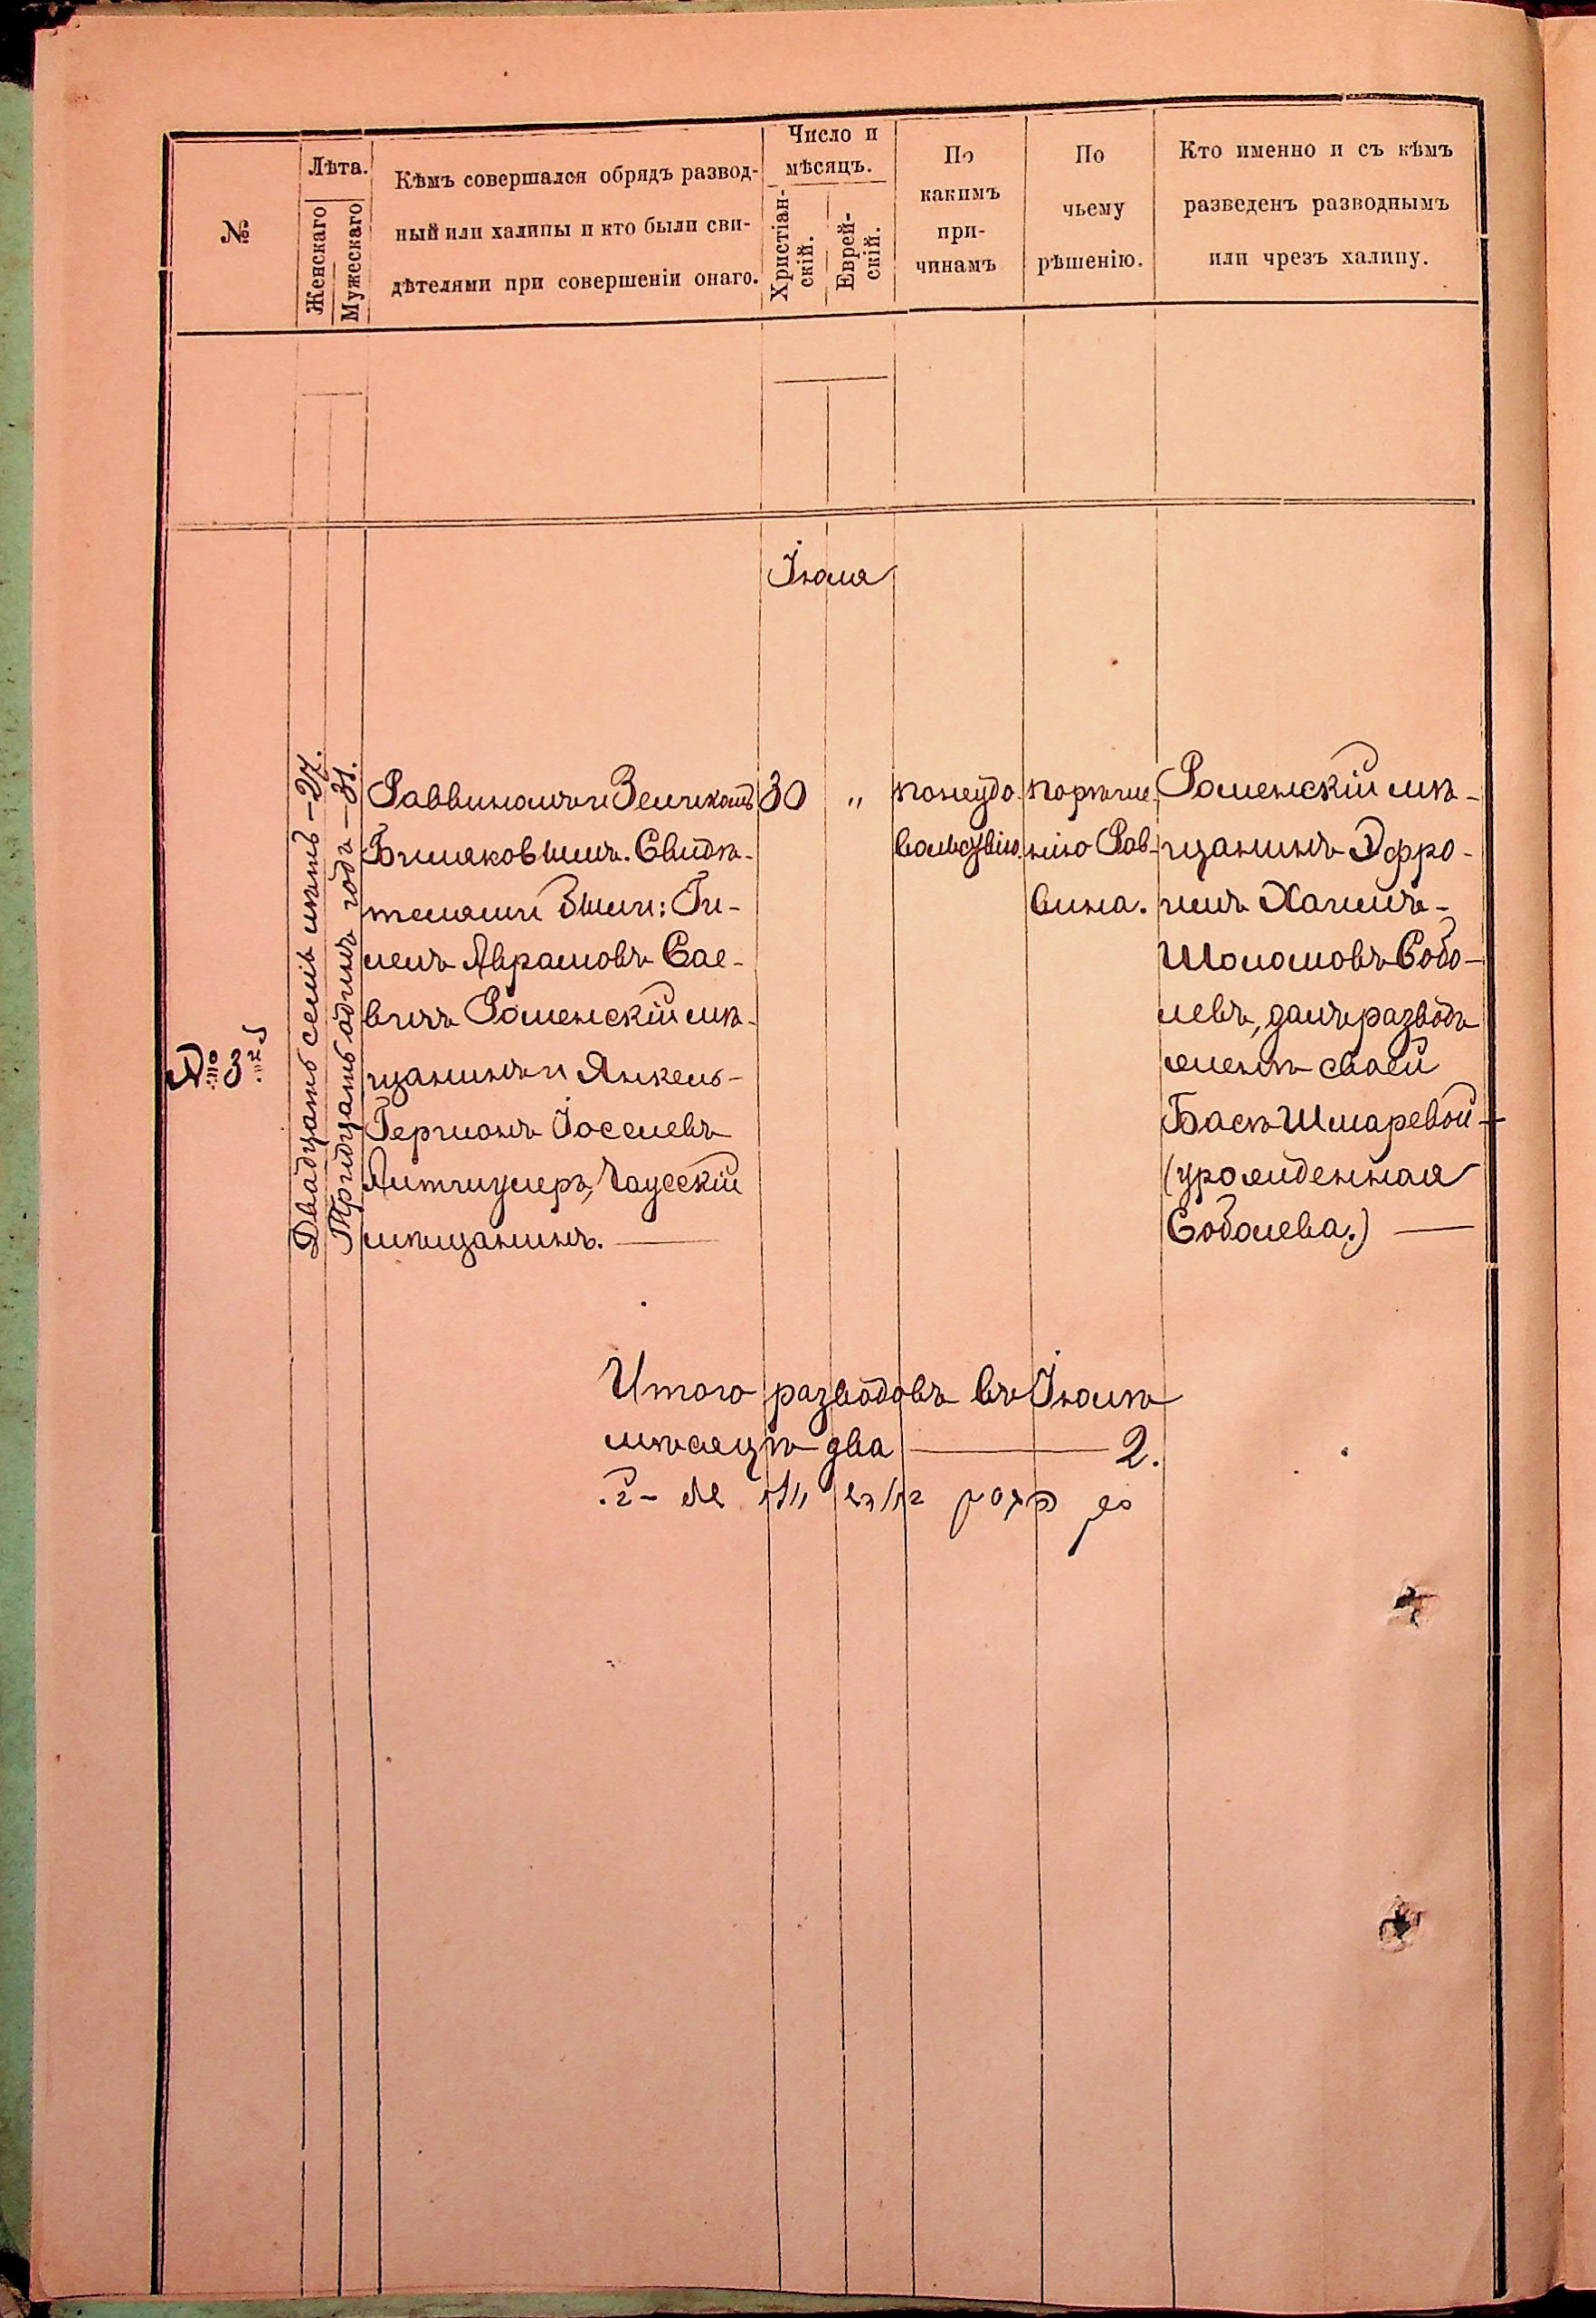 №
Лѣта.
Женскаго
Мужескаго
Кѣмъ совершался обрядъ развод-
ный или халицы и кто были сви-
дѣтелями при совершеніи онаго.
Число и
мѣсяцъ.
Христіан-
скій.
Еврей-
скій.
По
какимъ
при-
чинамъ
По
чьему
рѣшенію.
Кто именно и съ кѣмъ
разведенъ разводнымъ
или чрезъ халицу.
Іюля
№ 3й
Двадцать семь лѣтъ – 27.
Тридцать одинъ годъ – 31.
Раввиномъ Зеликомъ
Свидѣ-
телями были: Ги-
Аврамовъ Сае-
вичъ Роменскій мѣ-
щанинъ и Янкель-
Гершонъ Іосселевъ
Чаусскій
мѣщанинъ.
30 "
по неудо-
вольствію.
по рѣше-
нію Рав-
вина.
Роменскій мѣ-
щанинъ Эфро-
имъ Хаимъ-
Шоломовъ Собо-
левъ, далъ разводъ
женѣ своей
Басѣ Шмаревой
(урожденная
Соболева.)
Итого разводовъ въ Іюлѣ
мѣсяцѣ два 2.